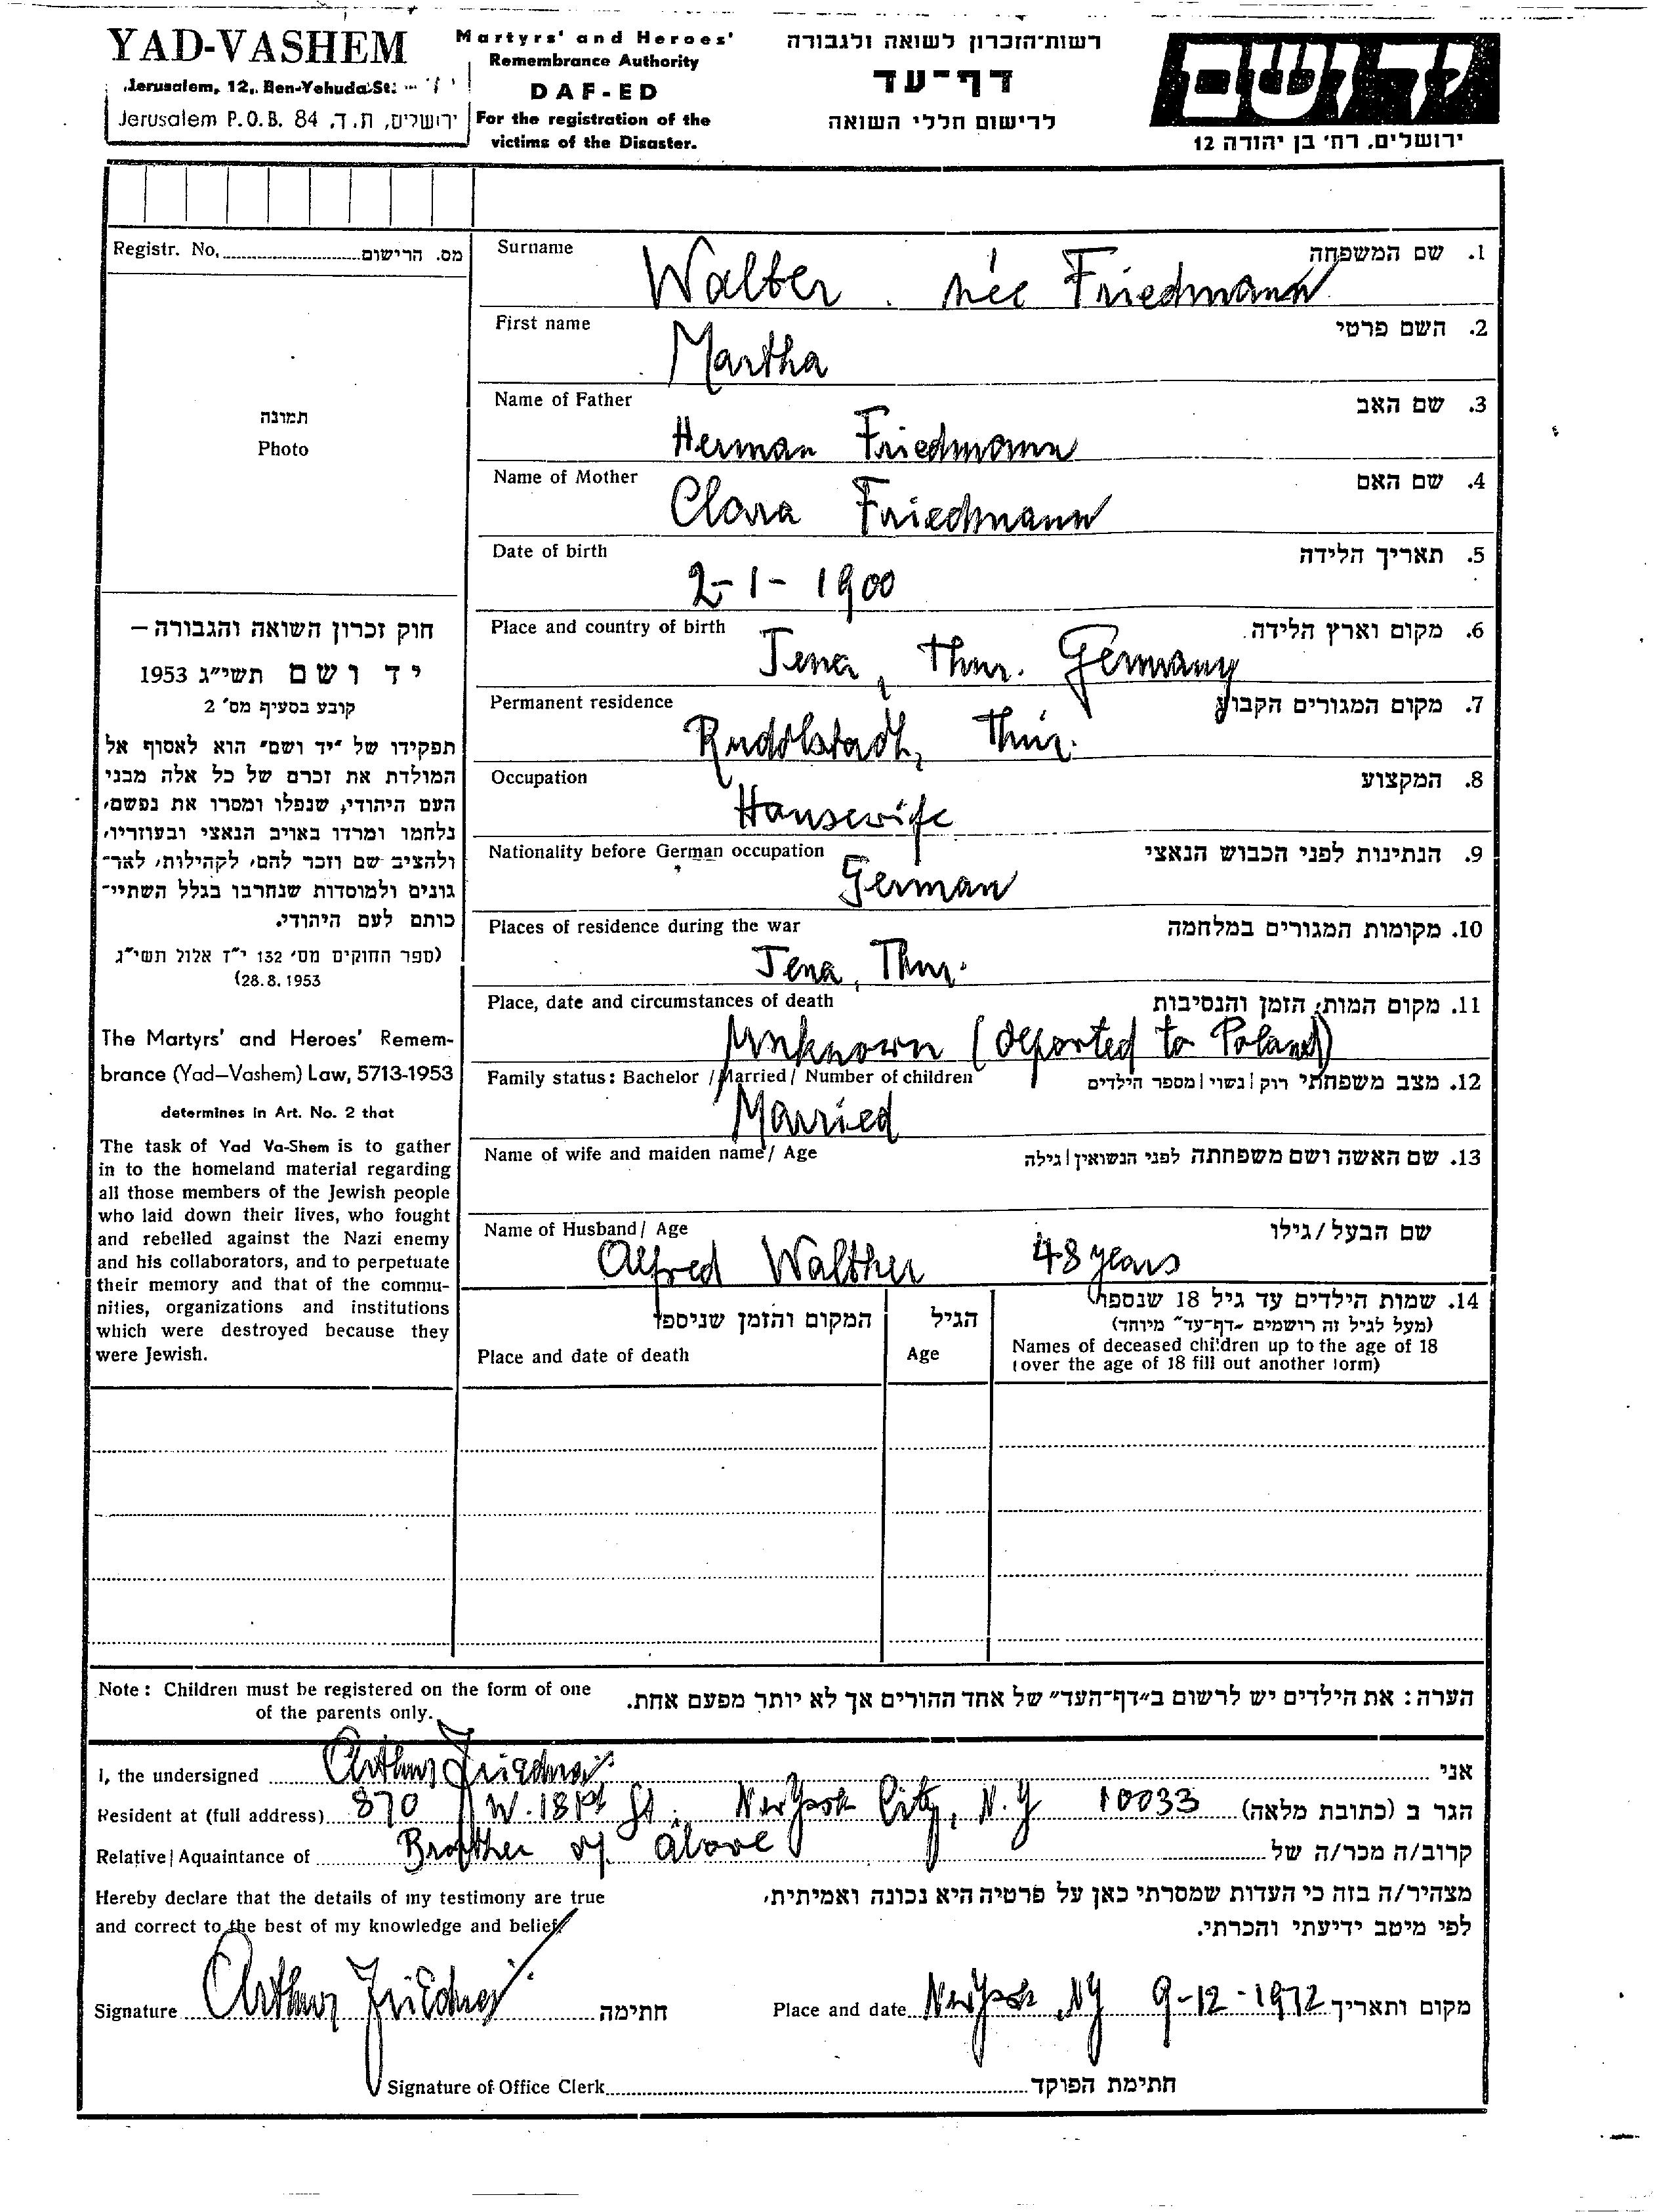 YAD-VASHEM
Jerusalem, 12, Ben-Yehuda St.
Jerusalem P.O.B. 84 ירושלים, ת.ד.
Martyrs' and Heroes'
Remembrance Authority
DAF-ED
For the registration of the
victims of the Disaster.
רשות-הזכרון לשואה ולגבורה
דף-עד
לרישום חללי השואה
יד ושם
ירושלים, רח' בן יהודה 12
Registr. No. מס. הרישום
תמונה
Photo
חוק זכרון השואה והגבורה –
יד ושם תשי"ג 1953
קובע בסעיף מס' 2
תפקידו של "יד ושם" הוא לאסוף אל
המולדת את זכרם של כל אלה מבני
העם היהודי, שנפלו ומסרו את נפשם,
נלחמו ומרדו באויב הנאצי ובעוזריו,
ולהציב שם וזכר להם, לקהילות, לאר-
גונים ולמוסדות שנחרבו בגלל השתיי-
כותם לעם היהודי.
(ספר החוקים מס' 132 י"ד אלול תשי"ג
(28.8.1953
The Martyrs' and Heroes' Remem-
brance (Yad–Vashem) Law, 5713-1953
determines in Art. No. 2 that
The task of Yad Va-Shem is to gather
in to the homeland material regarding
all those members of the Jewish people
who laid down their lives, who fought
and rebelled against the Nazi enemy
and his collaborators, and to perpetuate
their memory and that of the commu-
nities, organizations and institutions
which were destroyed because they
were Jewish.
Surname 1. שם המשפחה
Walter née Friedmann
First name 2. השם פרטי
Martha
Name of Father 3. שם האב
Herman Friedmann
Name of Mother 4. שם האם
Clara Friedmann
Date of birth 5. תאריך הלידה
2-1-1900
Place and country of birth 6. מקום וארץ הלידה
Jena, Thur. Germany
Permanent residence 7. מקום המגורים הקבוע
Rudolstadt, Thür.
Occupation 8. המקצוע
Housewife
Nationality before German occupation 9. הנתינות לפני הכבוש הנאצי
German
Places of residence during the war 10. מקומות המגורים במלחמה
Jena, Thur.
Place, date and circumstances of death 11. מקום המות, הזמן והנסיבות
Unknown (deported to Poland)
Family status: Bachelor / Married / Number of children 12. מצב משפחתי רוק / נשוי / מספר הילדים
Married
Name of wife and maiden name / Age 13. שם האשה ושם משפחתה לפני הנשואין / גילה
Name of Husband / Age שם הבעל / גילו
Alfred Walther 48 years
14. שמות הילדים עד גיל 18 שנספו
(מעל לגיל זה רושמים "דף-עד" מיוחד)
Names of deceased children up to the age of 18
(over the age of 18 fill out another form)
הגיל
Age
המקום והזמן שניספו
Place and date of death
Note: Children must be registered on the form of one
of the parents only.
הערה: את הילדים יש לרשום ב"דף-העד" של אחד ההורים אך לא יותר מפעם אחת.
I, the undersigned Arthur Friedman אני
Resident at (full address) 870 W. 181st St. New York City, N.Y 10033 הגר ב (כתובת מלאה)
Relative / Aquaintance of Brother of above קרוב/ה מכר/ה של
Hereby declare that the details of my testimony are true
and correct to the best of my knowledge and belief
מצהיר/ה בזה כי העדות שמסרתי כאן על פרטיה היא נכונה ואמיתית,
לפי מיטב ידיעתי והכרתי.
Signature Arthur Friedman חתימה
Place and date New York, NY 9-12-1972 מקום ותאריך
Signature of Office Clerk חתימת הפוקד